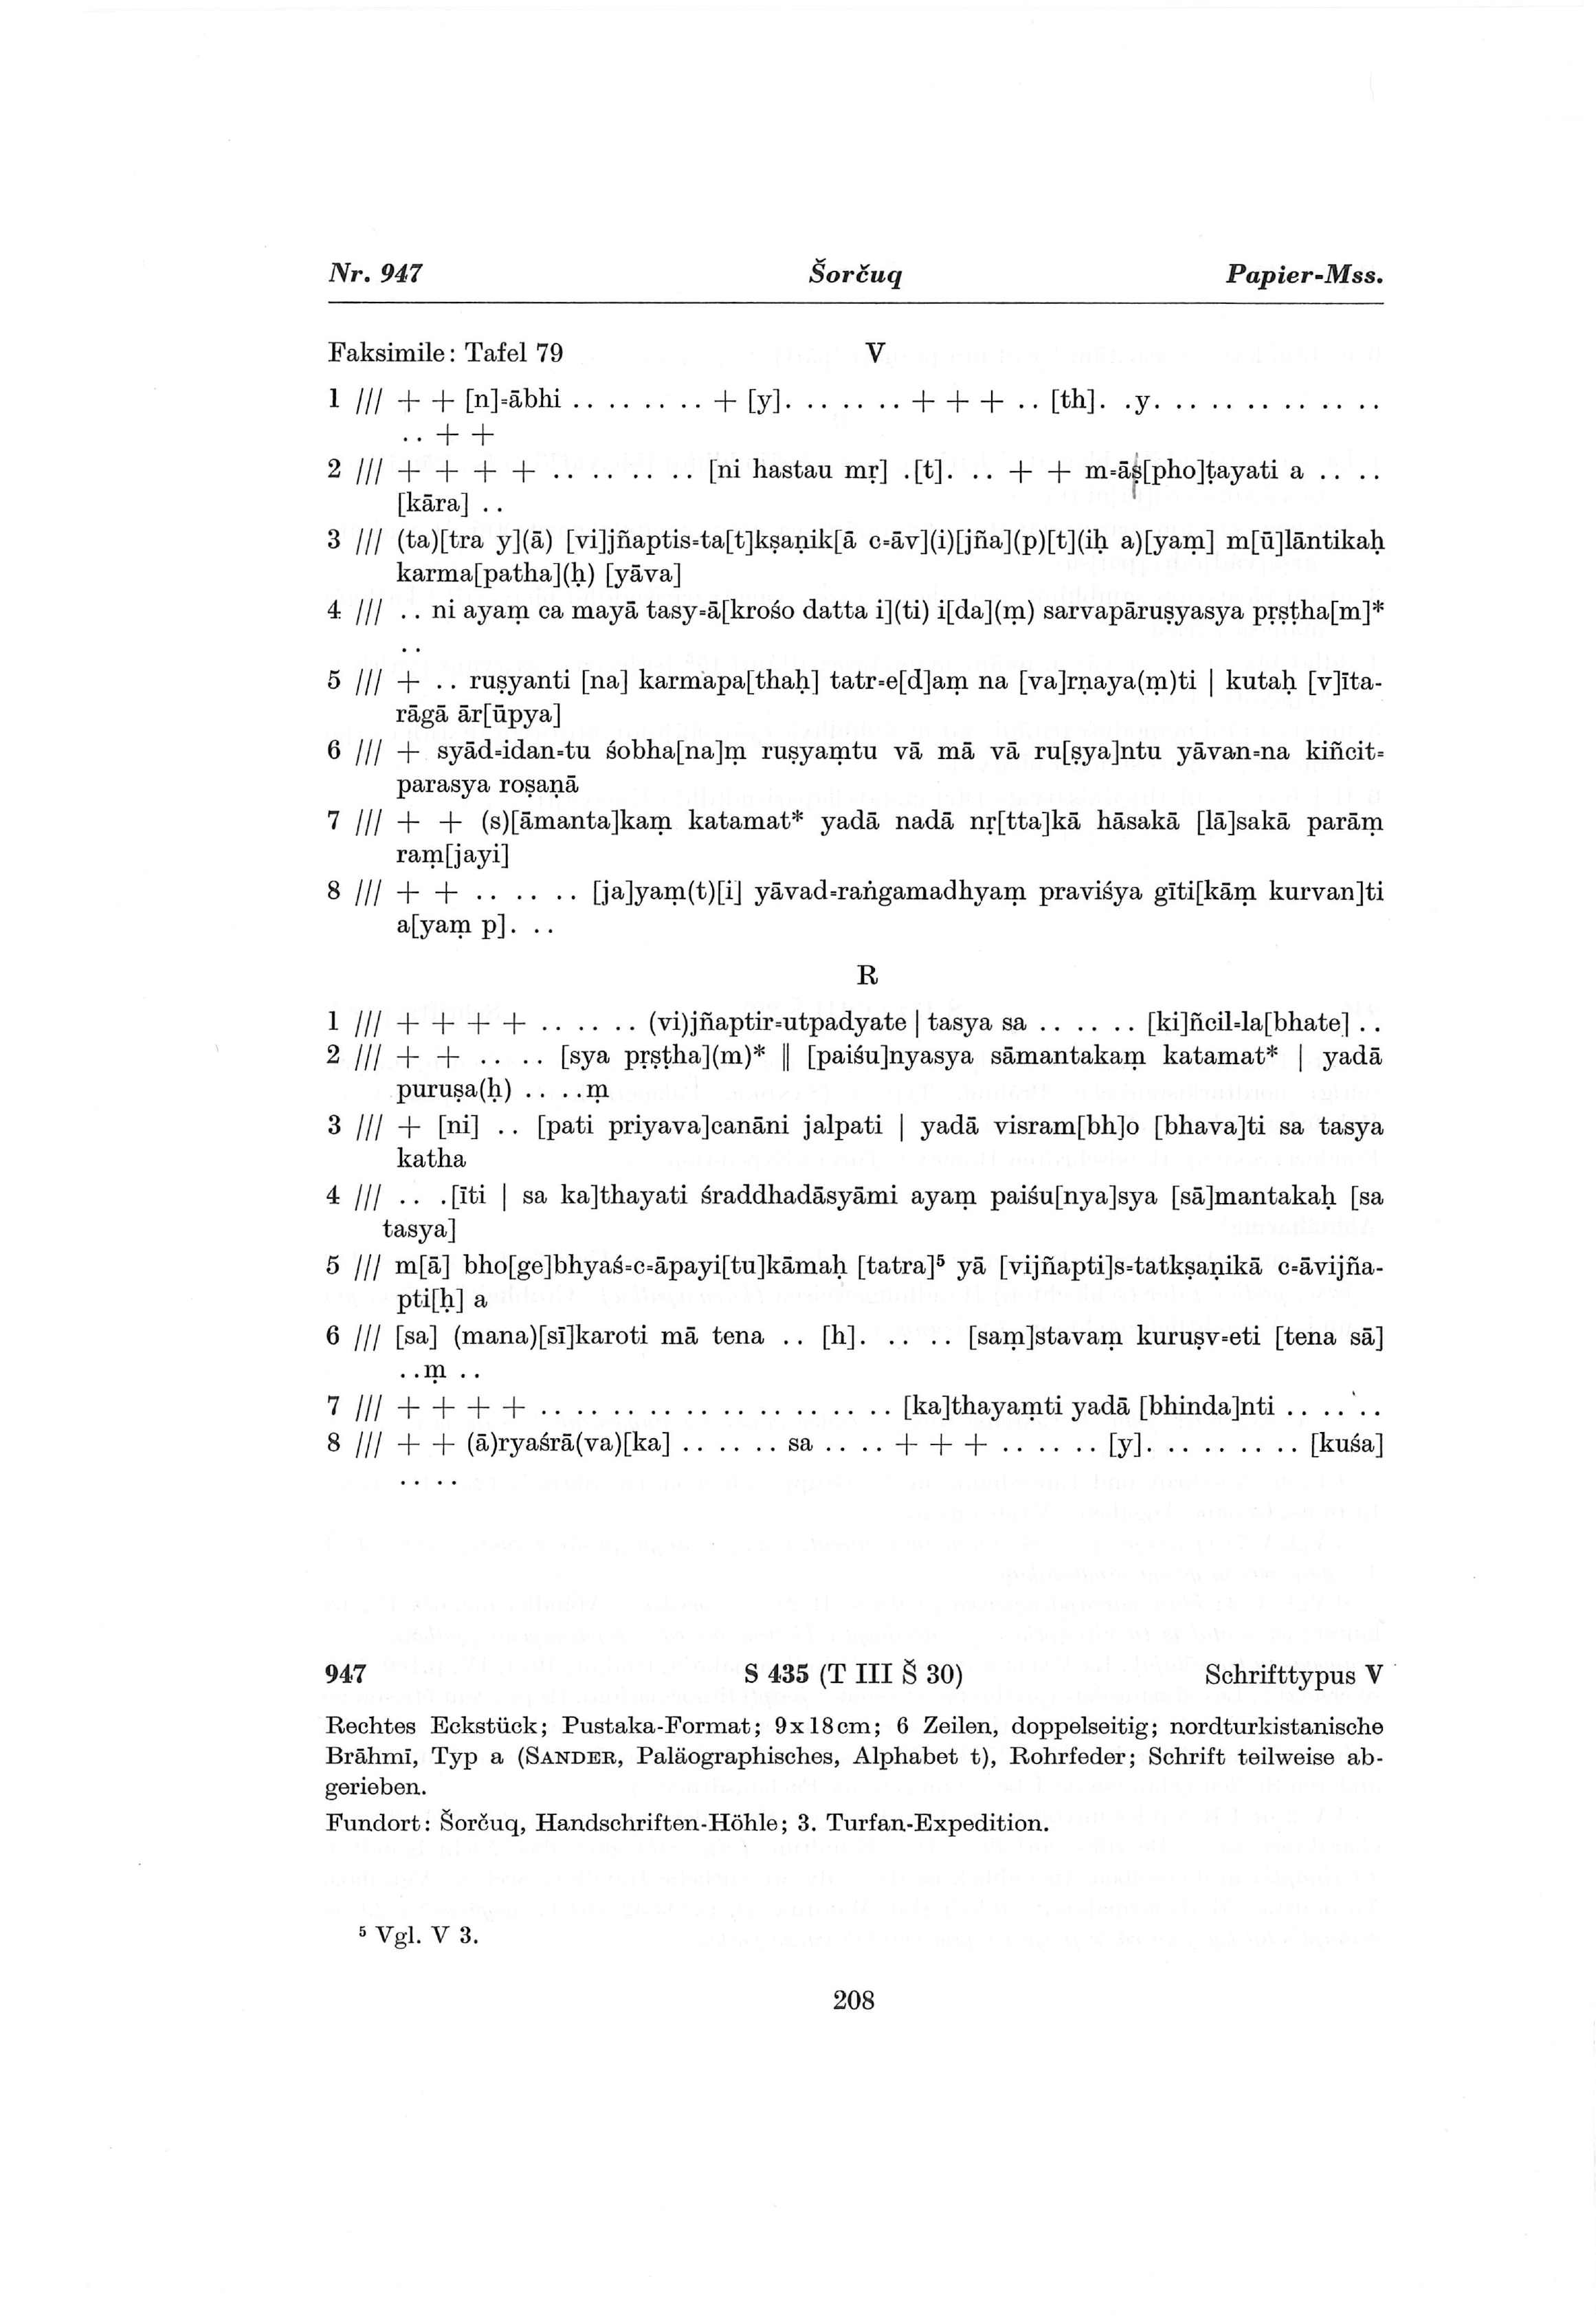 Nr. 947 Šorčuq Papier-Mss.
Faksimile: Tafel 79 V
1 /// + + [n]=ābhi .. .. .. .. + [y]. .. .. .. + + + .. [th]. .y. .. .. .. .. .. ..
.. + +
2 /// + + + + .. .. .. .. [ni hastau mṛ] .[t]. .. + + m=āṣ[pho]ṭayati a .. ..
[kāra] ..
3 /// (ta)[tra y](ā) [vi]jñaptis=ta[t]kṣaṇik[ā c=āv](i)[jña](p)[t](iḥ a)[yaṃ] m[ū]lāntikaḥ
karma[patha](ḥ) [yāva]
4 /// .. ni ayaṃ ca mayā tasy=ā[krośo datta i](ti) i[da](ṃ) sarvapāruṣyasya pṛṣṭha[m]*
..
5 /// + .. ruṣyanti [na] karmapa[thaḥ] tatr=e[d]aṃ na [va]rṇaya(ṃ)ti | kutaḥ [v]īta-
rāgā ār[ūpya]
6 /// + syād=idan=tu śobha[na]ṃ ruṣyaṃtu vā mā vā ru[ṣya]ntu yāvan=na kiñcit=
parasya roṣaṇā
7 /// + + (s)[āmanta]kaṃ katamat* yadā nadā nṛ[tta]kā hāsakā [lā]sakā parāṃ
raṃ[jayi]
8 /// + + .. .. .. [ja]yaṃ(t)[i] yāvad=raṅgamadhyaṃ praviśya gīti[kāṃ kurvan]ti
a[yaṃ p]. ..
R
1 /// + + + + .. .. .. (vi)jñaptir=utpadyate | tasya sa .. .. .. [ki]ñcil=la[bhate] ..
2 /// + + .. .. [sya pṛṣṭha](m)* || [paiśu]nyasya sāmantakaṃ katamat* | yadā
puruṣa(ḥ) .. ..ṃ
3 /// + [ni] .. [pati priyava]canāni jalpati | yadā visram[bh]o [bhava]ti sa tasya
katha
4 /// .. .[īti | sa ka]thayati śraddhadāsyāmi ayaṃ paiśu[nya]sya [sā]mantakaḥ [sa
tasya]
5 /// m[ā] bho[ge]bhyaś=c=āpayi[tu]kāmaḥ [tatra]⁵ yā [vijñapti]s=tatkṣaṇikā c=āvijña-
pti[ḥ] a
6 /// [sa] (mana)[sī]karoti mā tena .. [h]. .. .. [saṃ]stavaṃ kuruṣv=eti [tena sā]
..ṃ ..
7 /// + + + + .. .. .. .. .. .. .. .. .. .. [ka]thayaṃti yadā [bhinda]nti .. .. ..
8 /// + + (ā)ryaśrā(va)[ka] .. .. .. sa .. .. + + + .. .. .. [y]. .. .. .. .. [kuśa]
.. ..
947 S 435 (T III Š 30) Schrifttypus V
Rechtes Eckstück; Pustaka-Format; 9x18cm; 6 Zeilen, doppelseitig; nordturkistanische
Brāhmī, Typ a (SANDER, Paläographisches, Alphabet t), Rohrfeder; Schrift teilweise ab-
gerieben.
Fundort: Šorčuq, Handschriften-Höhle; 3. Turfan-Expedition.
⁵ Vgl. V 3.
208